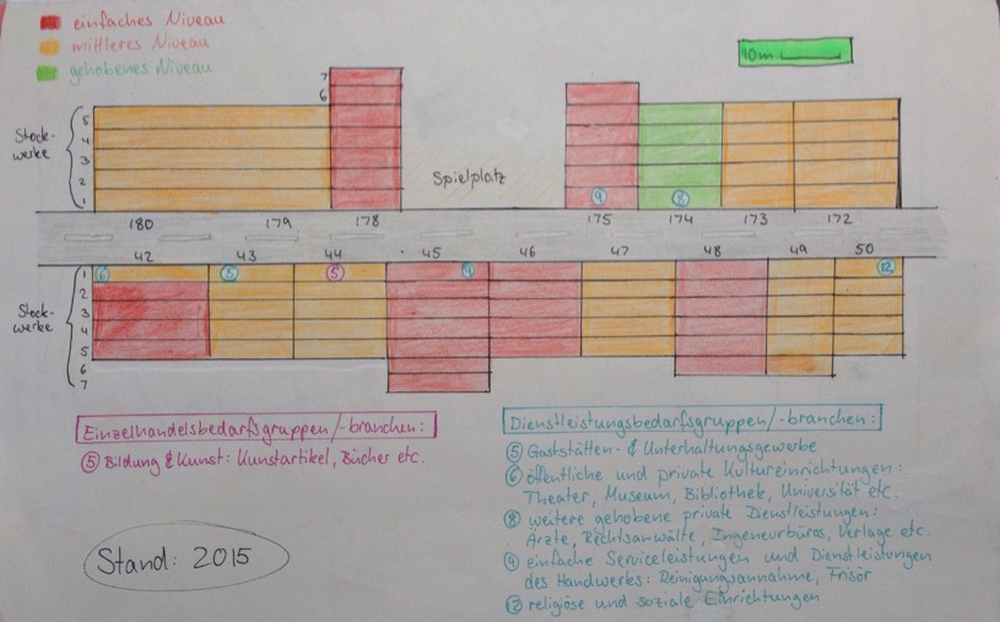 einfaches Niveau
mittleres Niveau
gehobenes Niveau
10m
7
6
Stock-
werke
5
4
3
2
1
Spielplatz
9
8
180 179 178 175 174 173 172
42 43 44 45 46 47 48 49 50
6 5 5 9 12
Stock-
werke
1
2
3
4
5
6
7
Einzelhandelsbedarfsgruppen/-branchen:
5 Bildung & Kunst: Kunstartikel, Bücher etc.
Stand: 2015
Dienstleistungsbedarfsgruppen/-branchen:
5 Gaststätten- & Unterhaltungsgewerbe
6 öffentliche und private Kultureinrichtungen:
Theater, Museum, Bibliothek, Universität etc.
8 weitere gehobene private Dienstleistungen:
Ärzte, Rechtsanwälte, Ingeneurbüros, Verlage etc.
9 einfache Serviceleistungen und Dienstleistungen
des Handwerks: Reinigungsannahme, Frisör
12 religiöse und soziale Einrichtungen